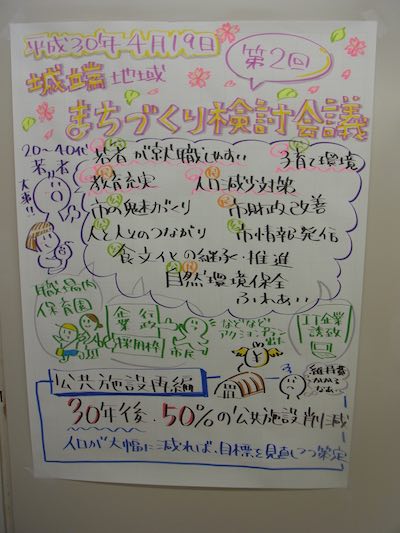 平成30年4月19日
第2回
城端地域
まちづくり検討会議
20～40代
若者
大事!!
若者が就職しやすい
子育て環境
教育充実
人口減少対策
市の魅力づくり
市財政改善
人と人とのつながり
市情報発信
食文化の継承・推進
自然環境保全
ふれあい
職場内
保育園
企業
行政
採用枠
市民
などなど
アクションプラン
IT企業
誘致
公共施設再編
維持費
かかるなぁ〜
30年後・50%の公共施設削減
人口が大幅に減れば、目標を見直しつつ策定